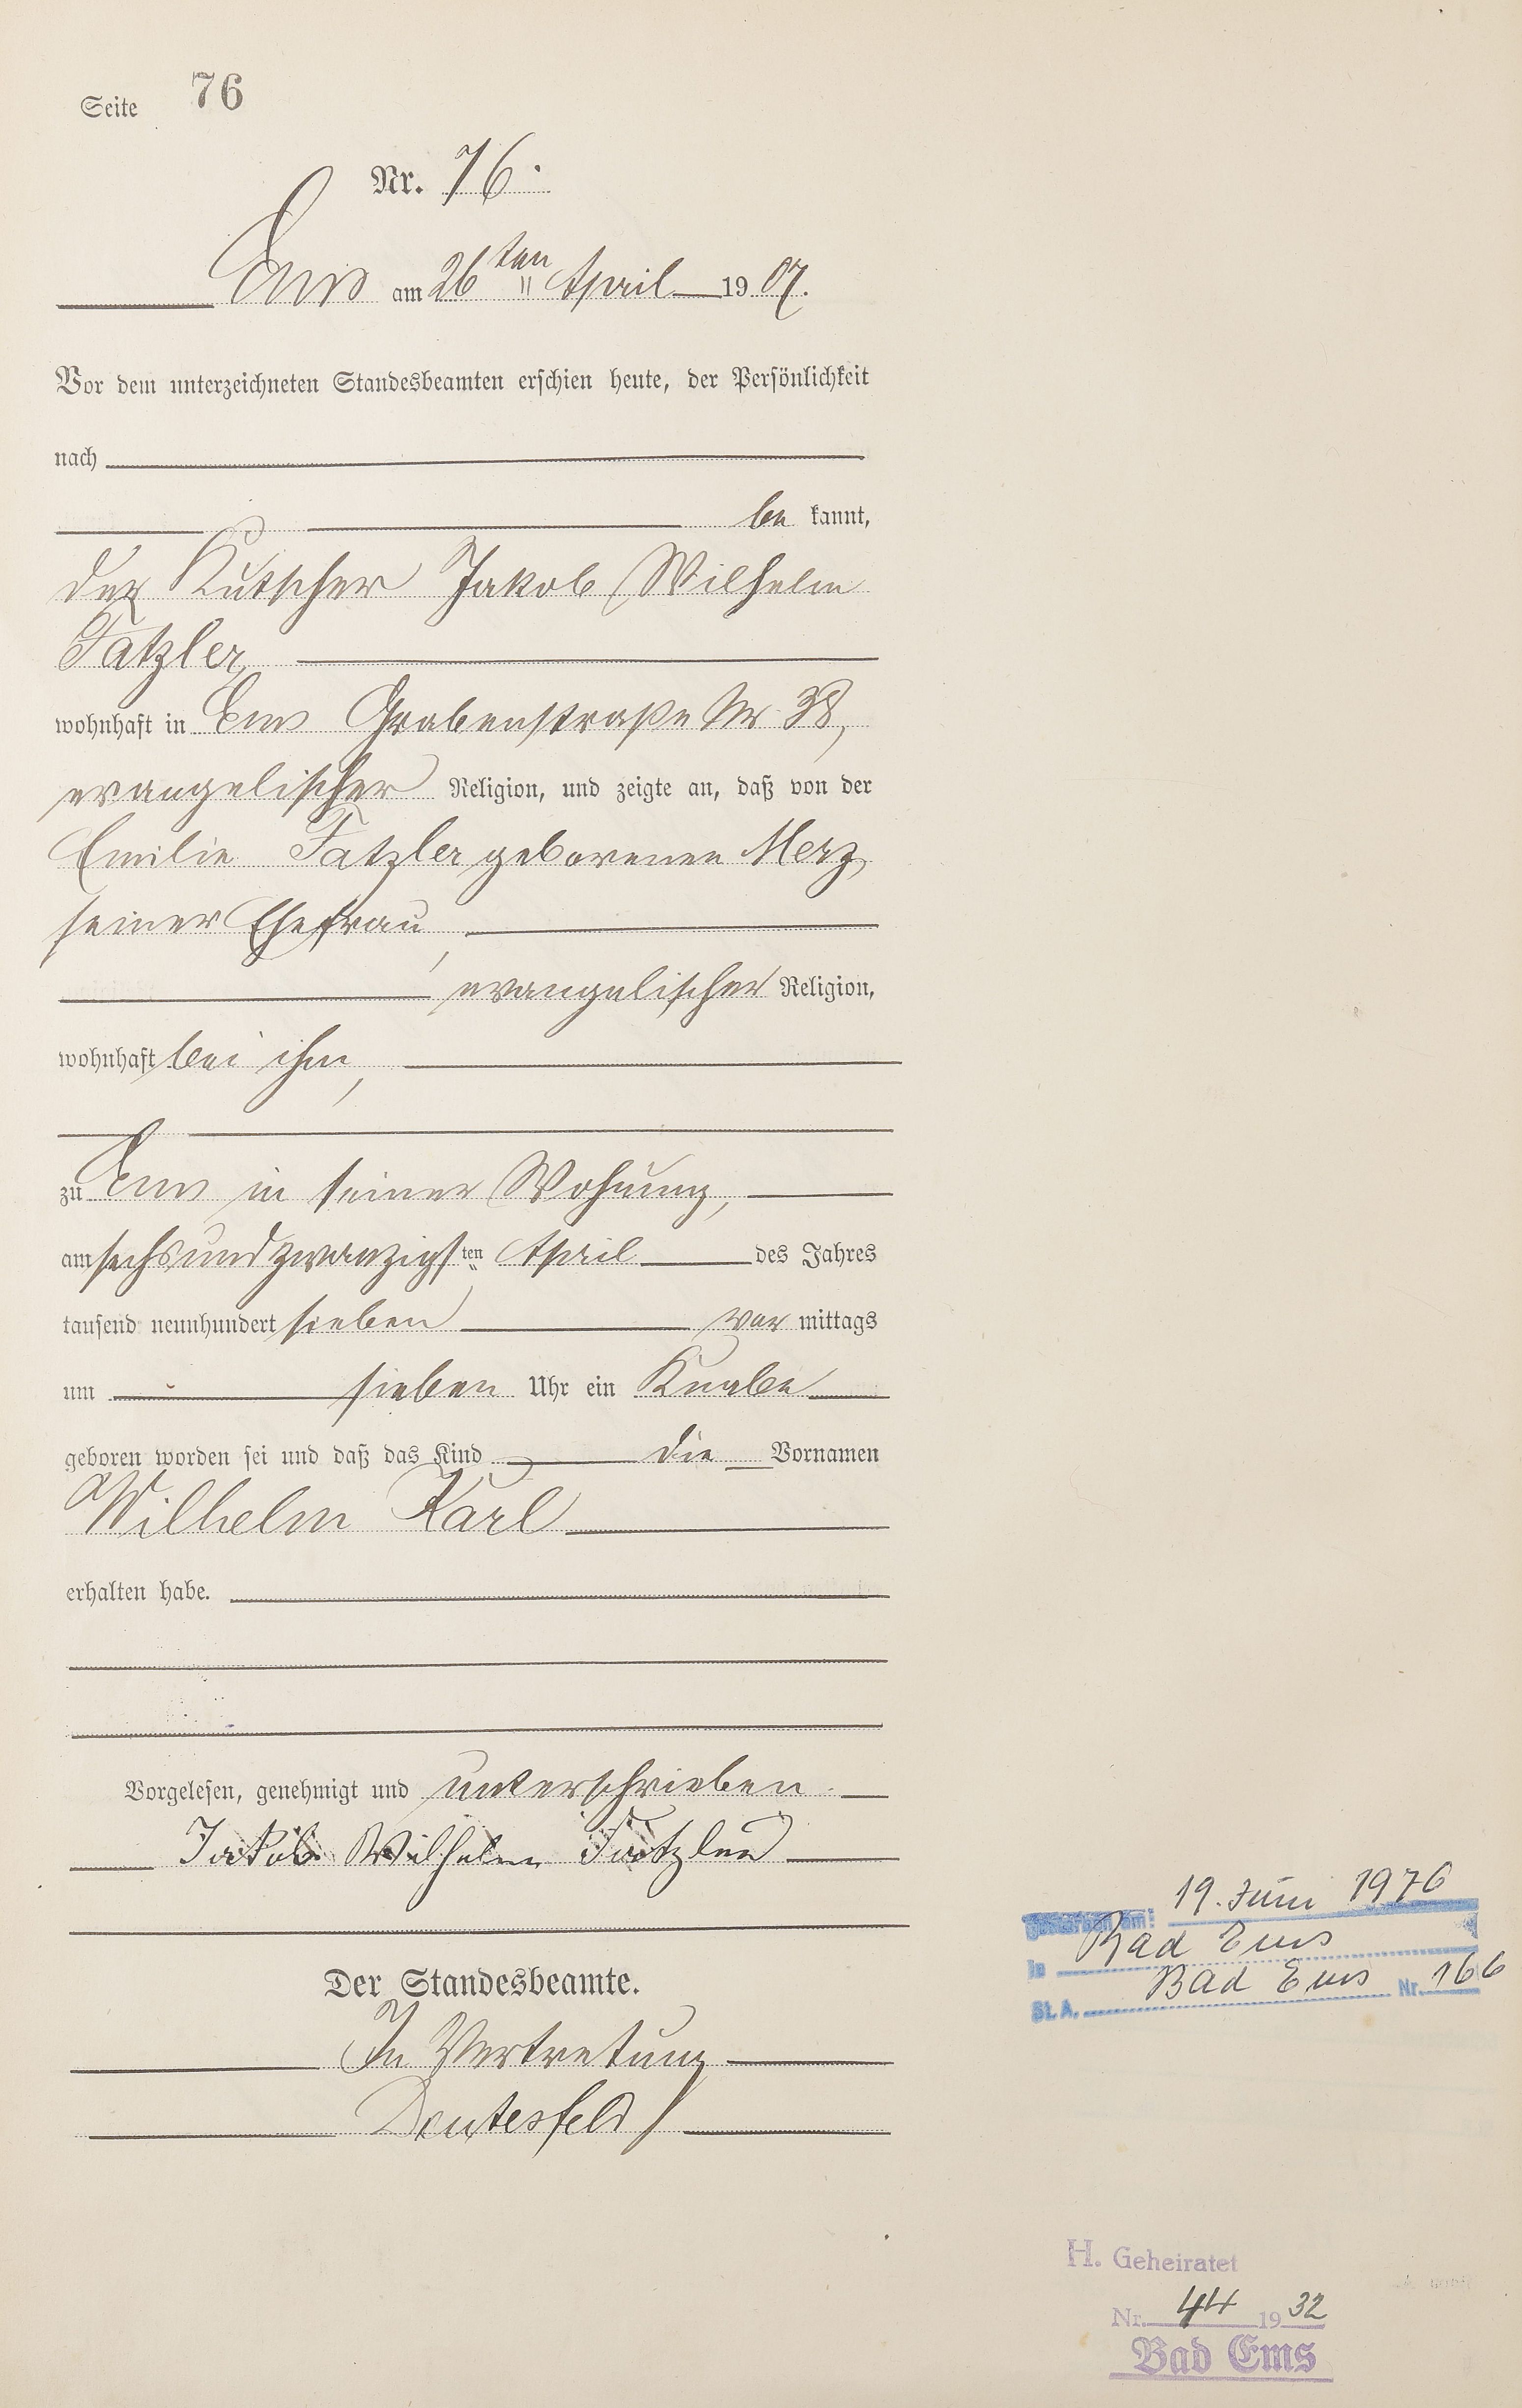 Seite 76
Nr. 76.
Ems am 26ten April 1907.
Vor dem unterzeichneten Standesbeamten erschien heute, der Persönlichkeit
nach
be kannt,
der Kutscher Jakob Wilhelm
Fatzler,
wohnhaft in Ems Grabenstraße Nr 38,
evangelischer Religion, und zeigte an, daß von der
Emilie Fatzler geborenen Merz,
seiner Ehefrau,
evangelischer Religion,
wohnhaft bei ihm,
zu Ems in seiner Wohnung,
am sechsundzwanzigsten April des Jahres
tausend neunhundert sieben vor mittags
um sieben Uhr ein Knabe
geboren worden sei und daß das Kind die Vornamen
Wilhelm Karl
erhalten habe.
Vorgelesen, genehmigt und unterschrieben.
Jakob Wilhelm Fatzler
Der Standesbeamte.
In Vertretung
Deutesfeld
Gestorben am: 19. Juni 1976
in Bad Ems
St. A. Bad Ems Nr. 166
H. Geheiratet
Nr. 44 1932
Bad Ems